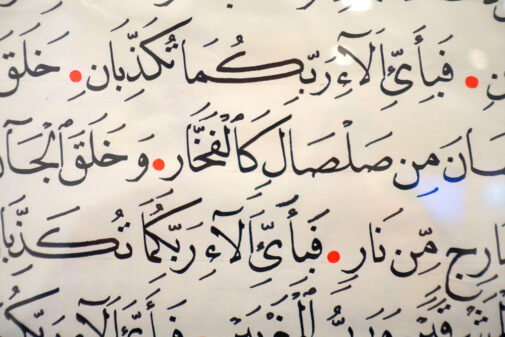 نِ • فَبِأَيِّ اَلَآءِ رَبِّكُمَا تُكَذِّبَان • خَلَقَ
سَانَ مِن صَلْصَالٍ كَٱلْفَخَّار • وَ خَلَقَ ٱلْجَآ
ارِجٍ مِّن نَارٍ • فَبِأَيِّ اَلَآءِ رَبِّكُمَا تُكَذِّبَا
شْرِقَيْن وَرَبُّ ٱلْمَغْرِبَيْن • فَبِأَيِّ اَلَآءِ رَبِّكُ